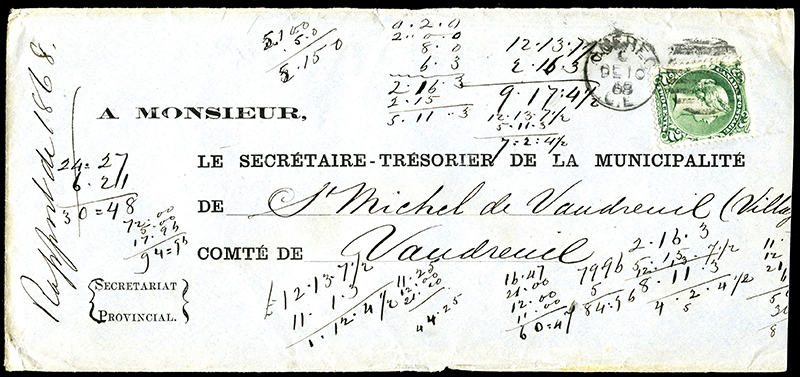 Rapport de 1868.
5.10 0
5.0
5.15 0
0.2.0
2.0.0
8.0
6.3
2.16.3
2.15
5.11.3
12.13.7½
2.16.3
9.17.4½
12.13.7½
5.11.3
7=2.4½
QUEBEC
DE 10
68
C.E.
A MONSIEUR,
LE SECRÉTAIRE-TRÉSORIER DE LA MUNICIPALITÉ
DE St Michel de Vaudreuil (Villag
COMTÉ DE Vaudreuil
24=27
6.21
30=48
72.00
5.00
17.96
94=96
SECRETARIAT
PROVINCIAL.
£12.13.7½
11.1.3
1.12.4½
11.25
12.00
21.00
44.25
16.47
21.00
12.00
11.00
60=47
7996
5
84.96
2.16.3
8.11.3
4.2.4½
5